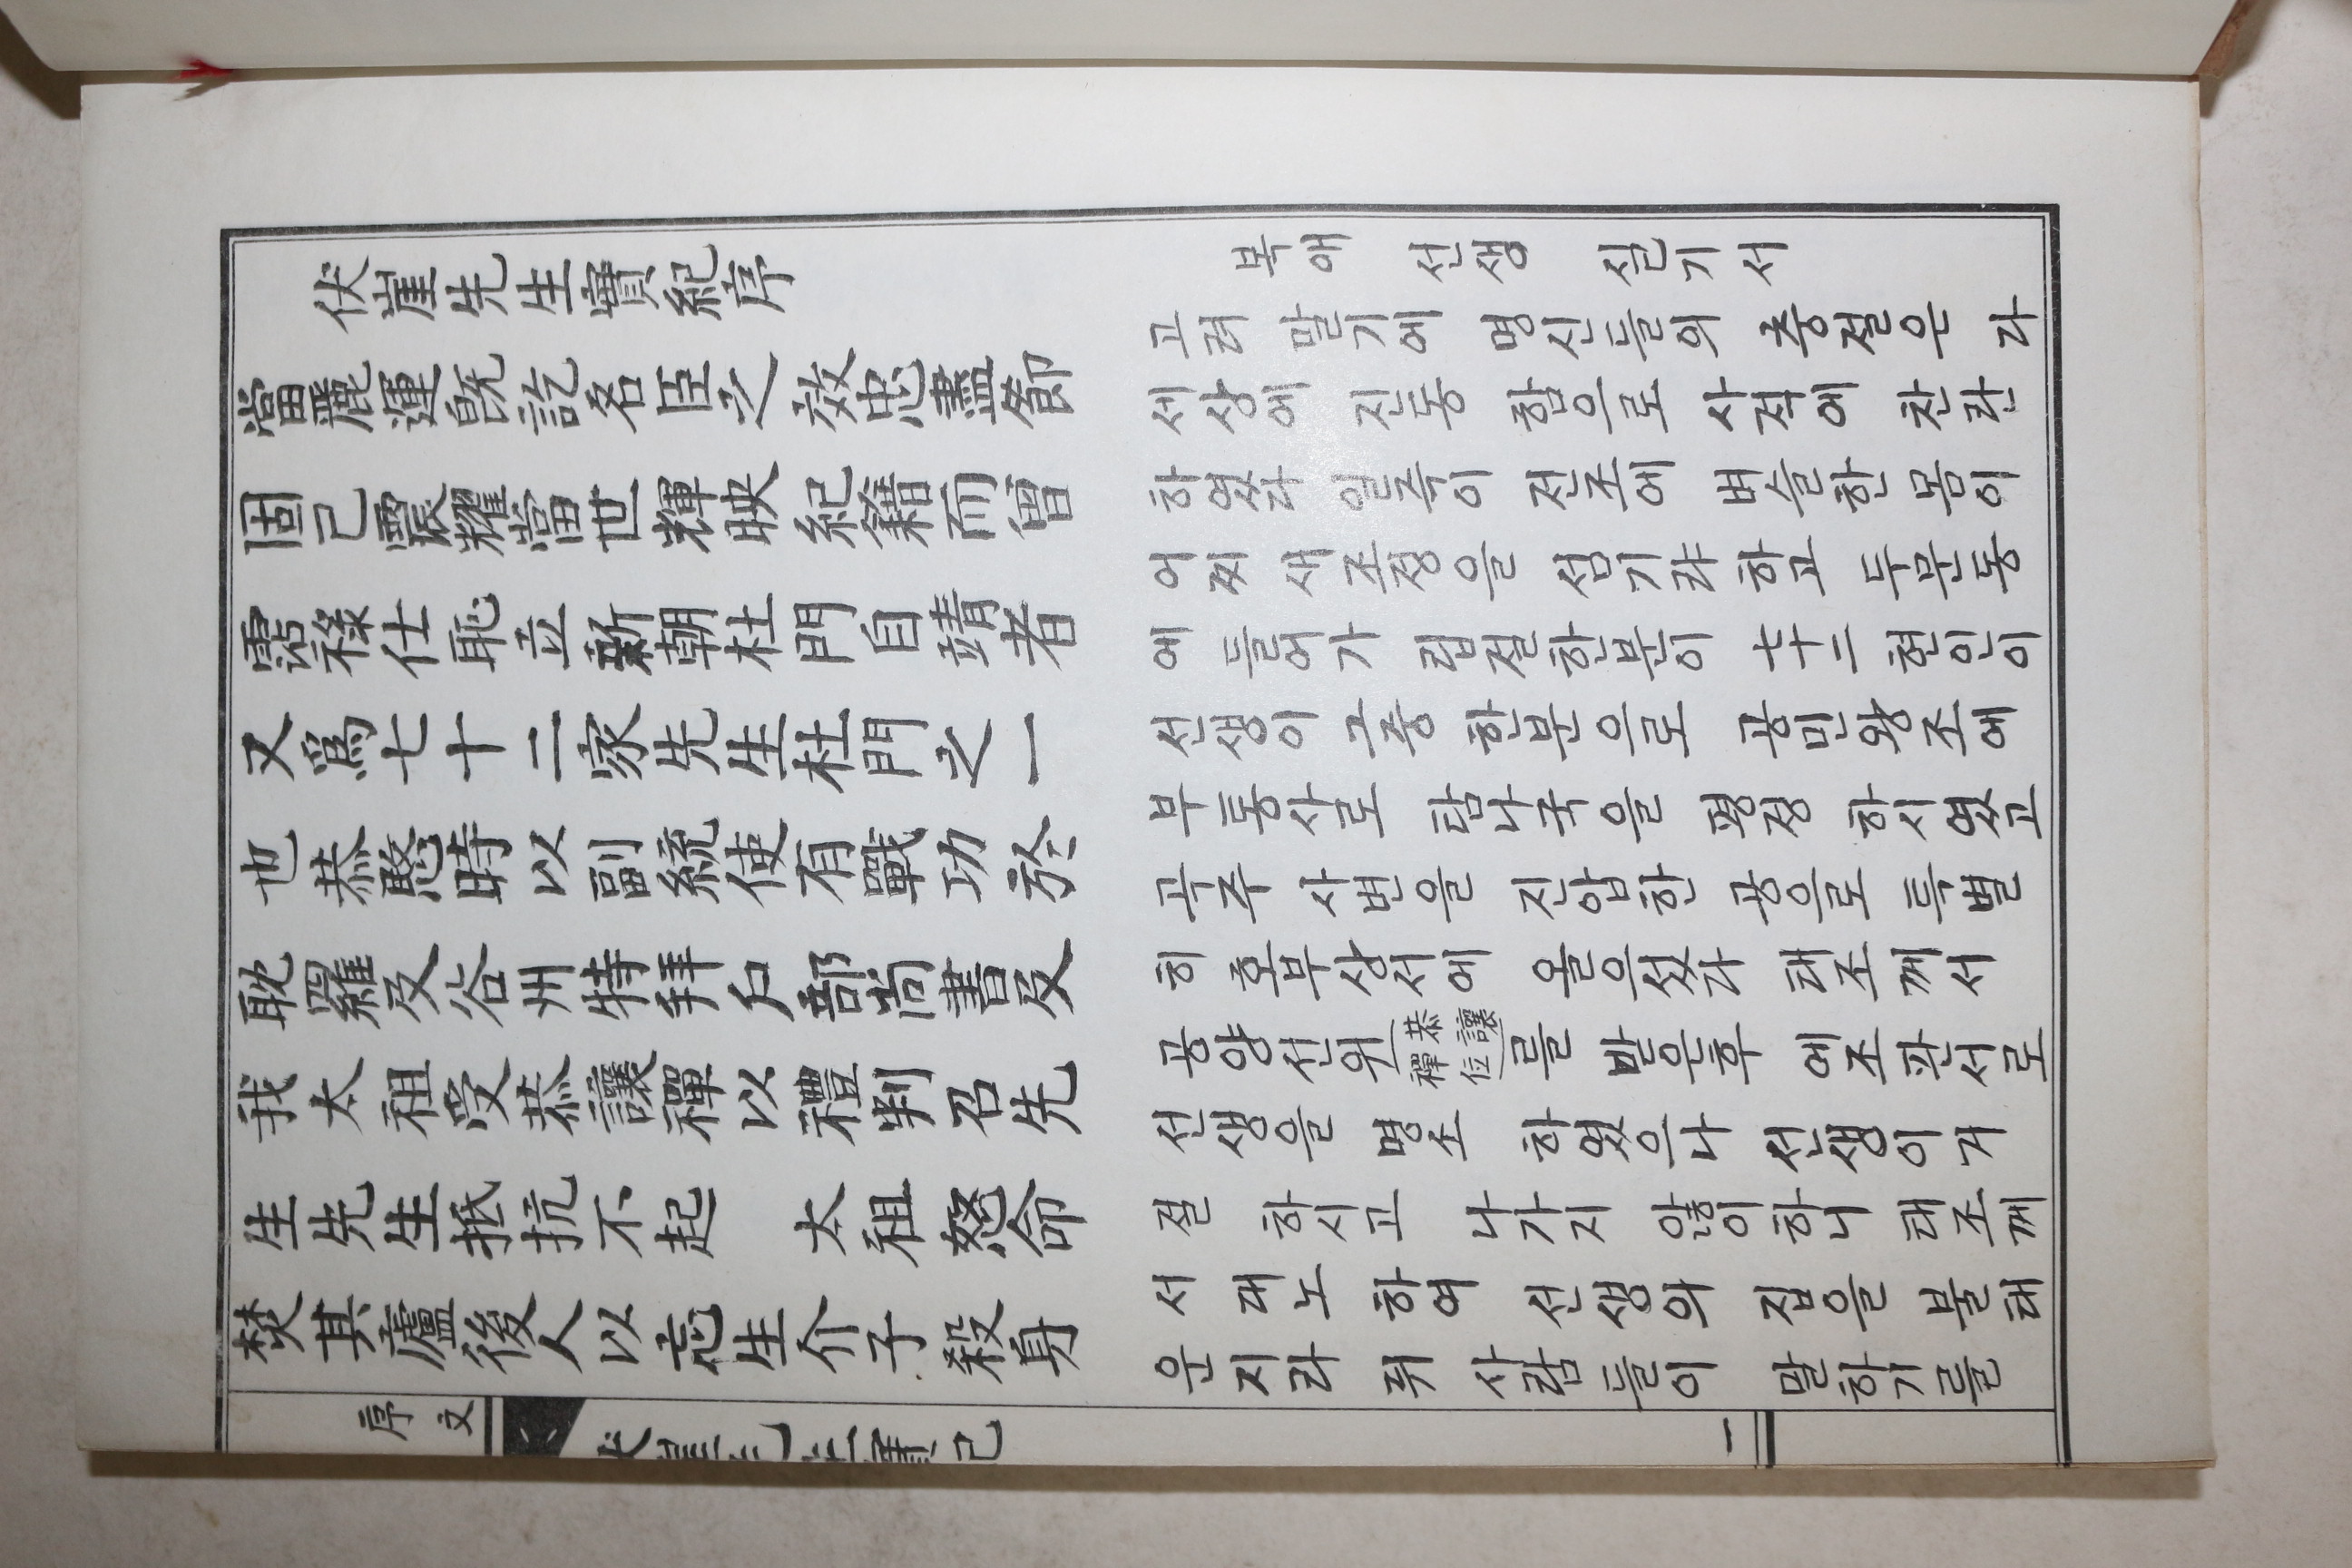 伏崖先生實紀序
當麗運旣訖名臣之效忠盡節
固已震耀當世輝映紀籍而曾
霑祿仕恥立新朝杜門自靖者
又爲七十二家先生杜門之一
也恭愍時以副統使有戰功於
耽羅及谷州特拜戶部尙書及
我太祖受恭讓禪以禮判召先
生先生抵抗不起 太祖怒命
焚其廬後人以忘生介子殺身
복애 선생 실기서
고려 말기에 명신들의 충절은 다
세상에 진동 함으로 사적에 찬란
하였다 일즉이 전조에 벼슬한 몸이
어찌 새조정을 섬기랴 하고 두문동
에 들어가 립절한분이 七十二 현인이
선생이 그중 한분으로 공민왕조에
부통사로 탐나국을 평정 하시였고
곡주 사변을 진압한 공으로 특별
히 호부상서에 올으섰다 태조께서
공양선위(恭讓禪位)를 받은후 예조판서로
선생을 명소 하였으나 선생이 거
절 하시고 나가지 않이하니 태조께
서 대노 하여 선생의 집을 불태
운지라 뒤 사람들이 말하기를
序文
伏崖先生實紀
一